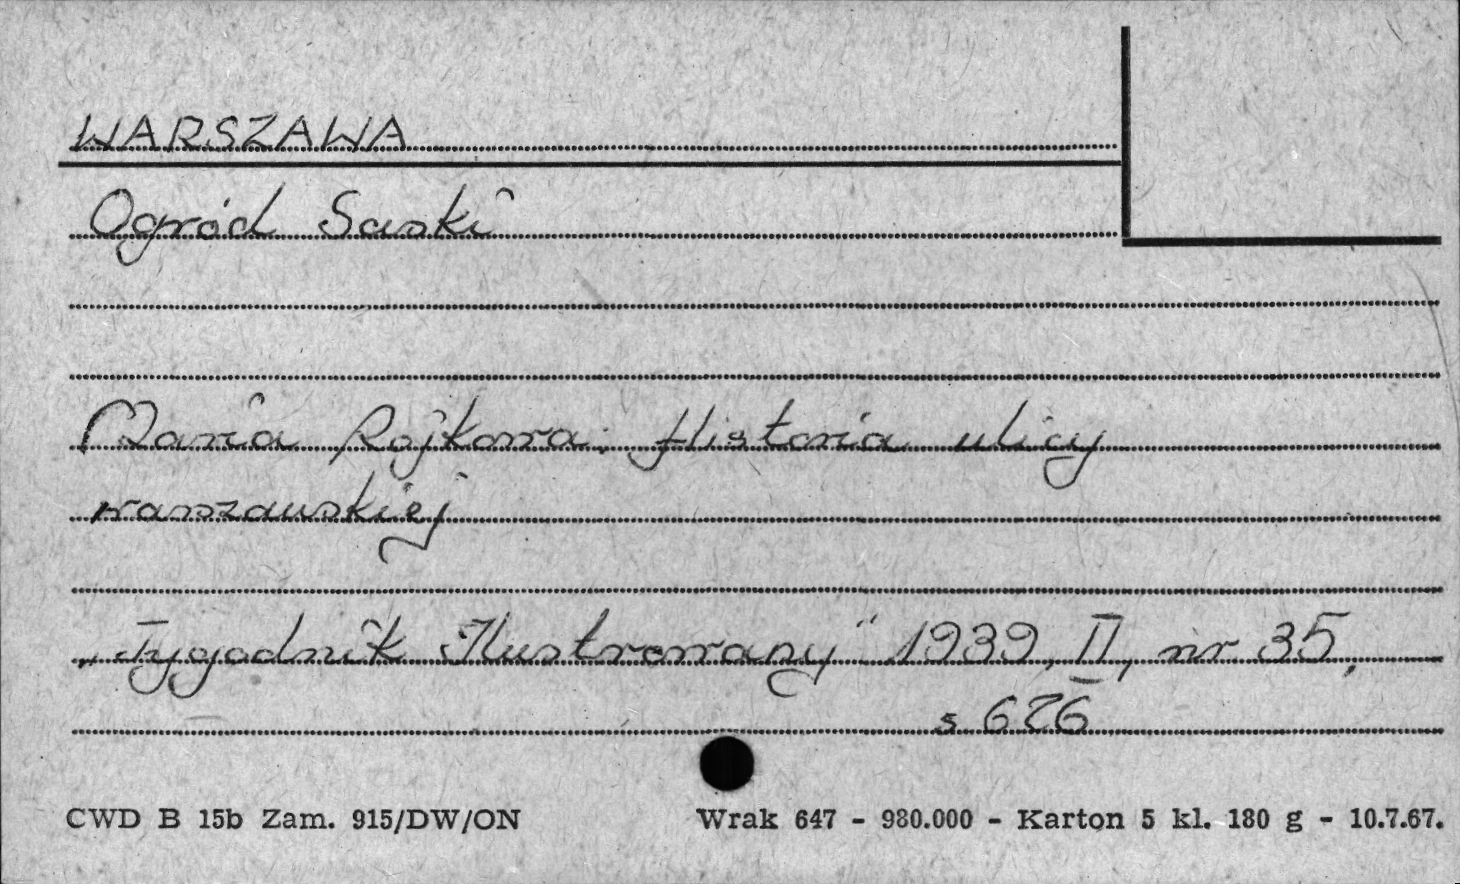 WARSZAWA
Ogród Saski
Maria Rojkowa: Historia ulicy
warszawskiej
„Tygodnik Ilustrowany" 1939, II, nr 35,
s 676
CWD B 15b Zam. 915/DW/ON Wrak 647 - 980.000 - Karton 5 kl. 180 g - 10.7.67.